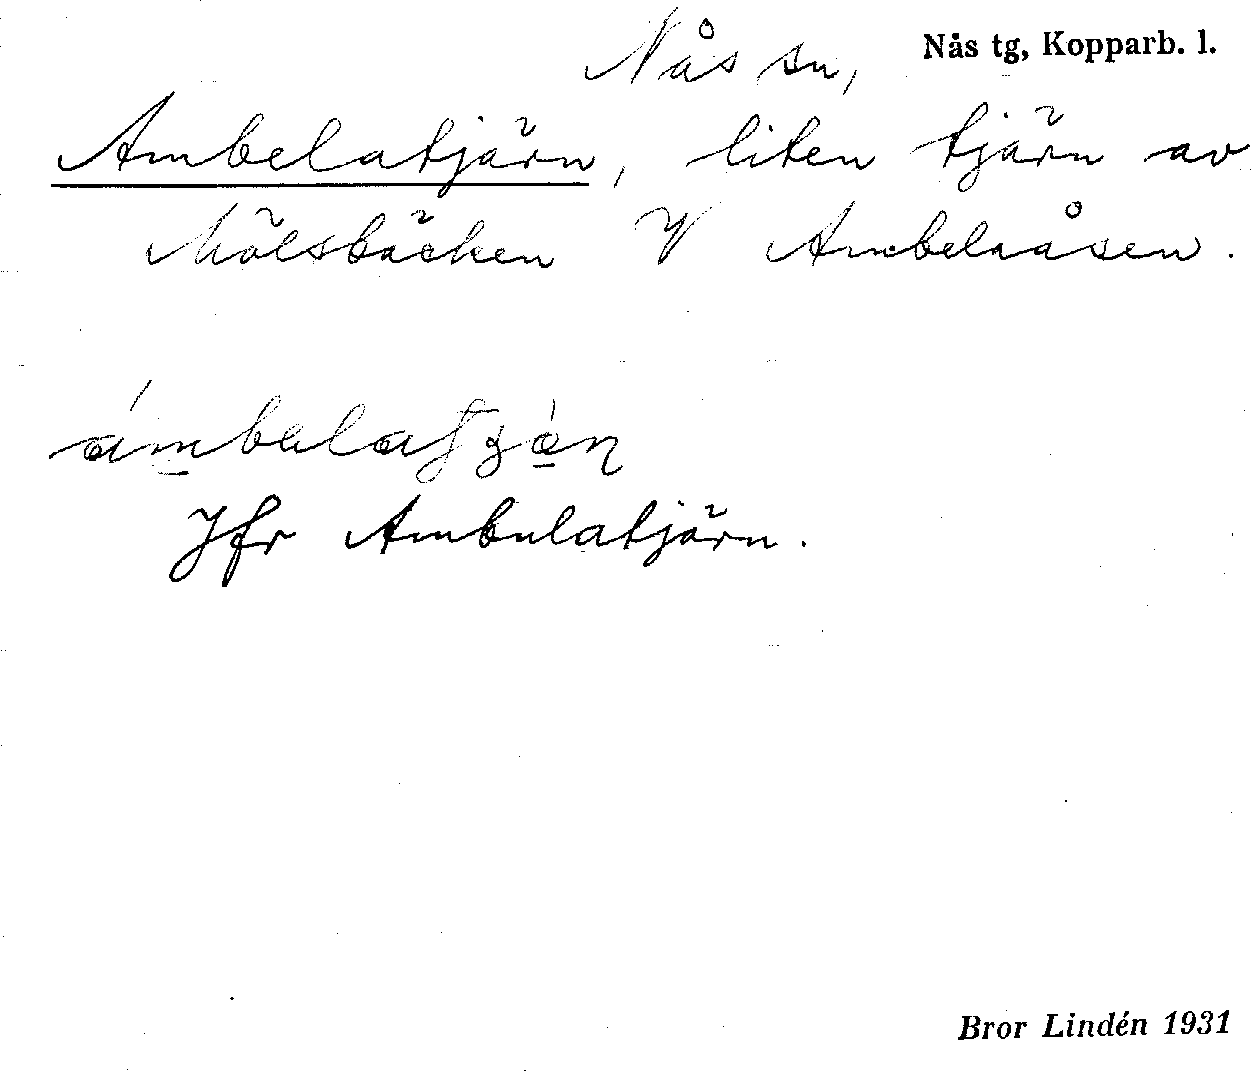 Nås sn, Nås tg, Kopparb. l.
Ambelatjärn, liten tjärn av
Mölsbäcken V Ambelaåsen.
Jfr Ambulatjärn.
Bror Lindén 1931